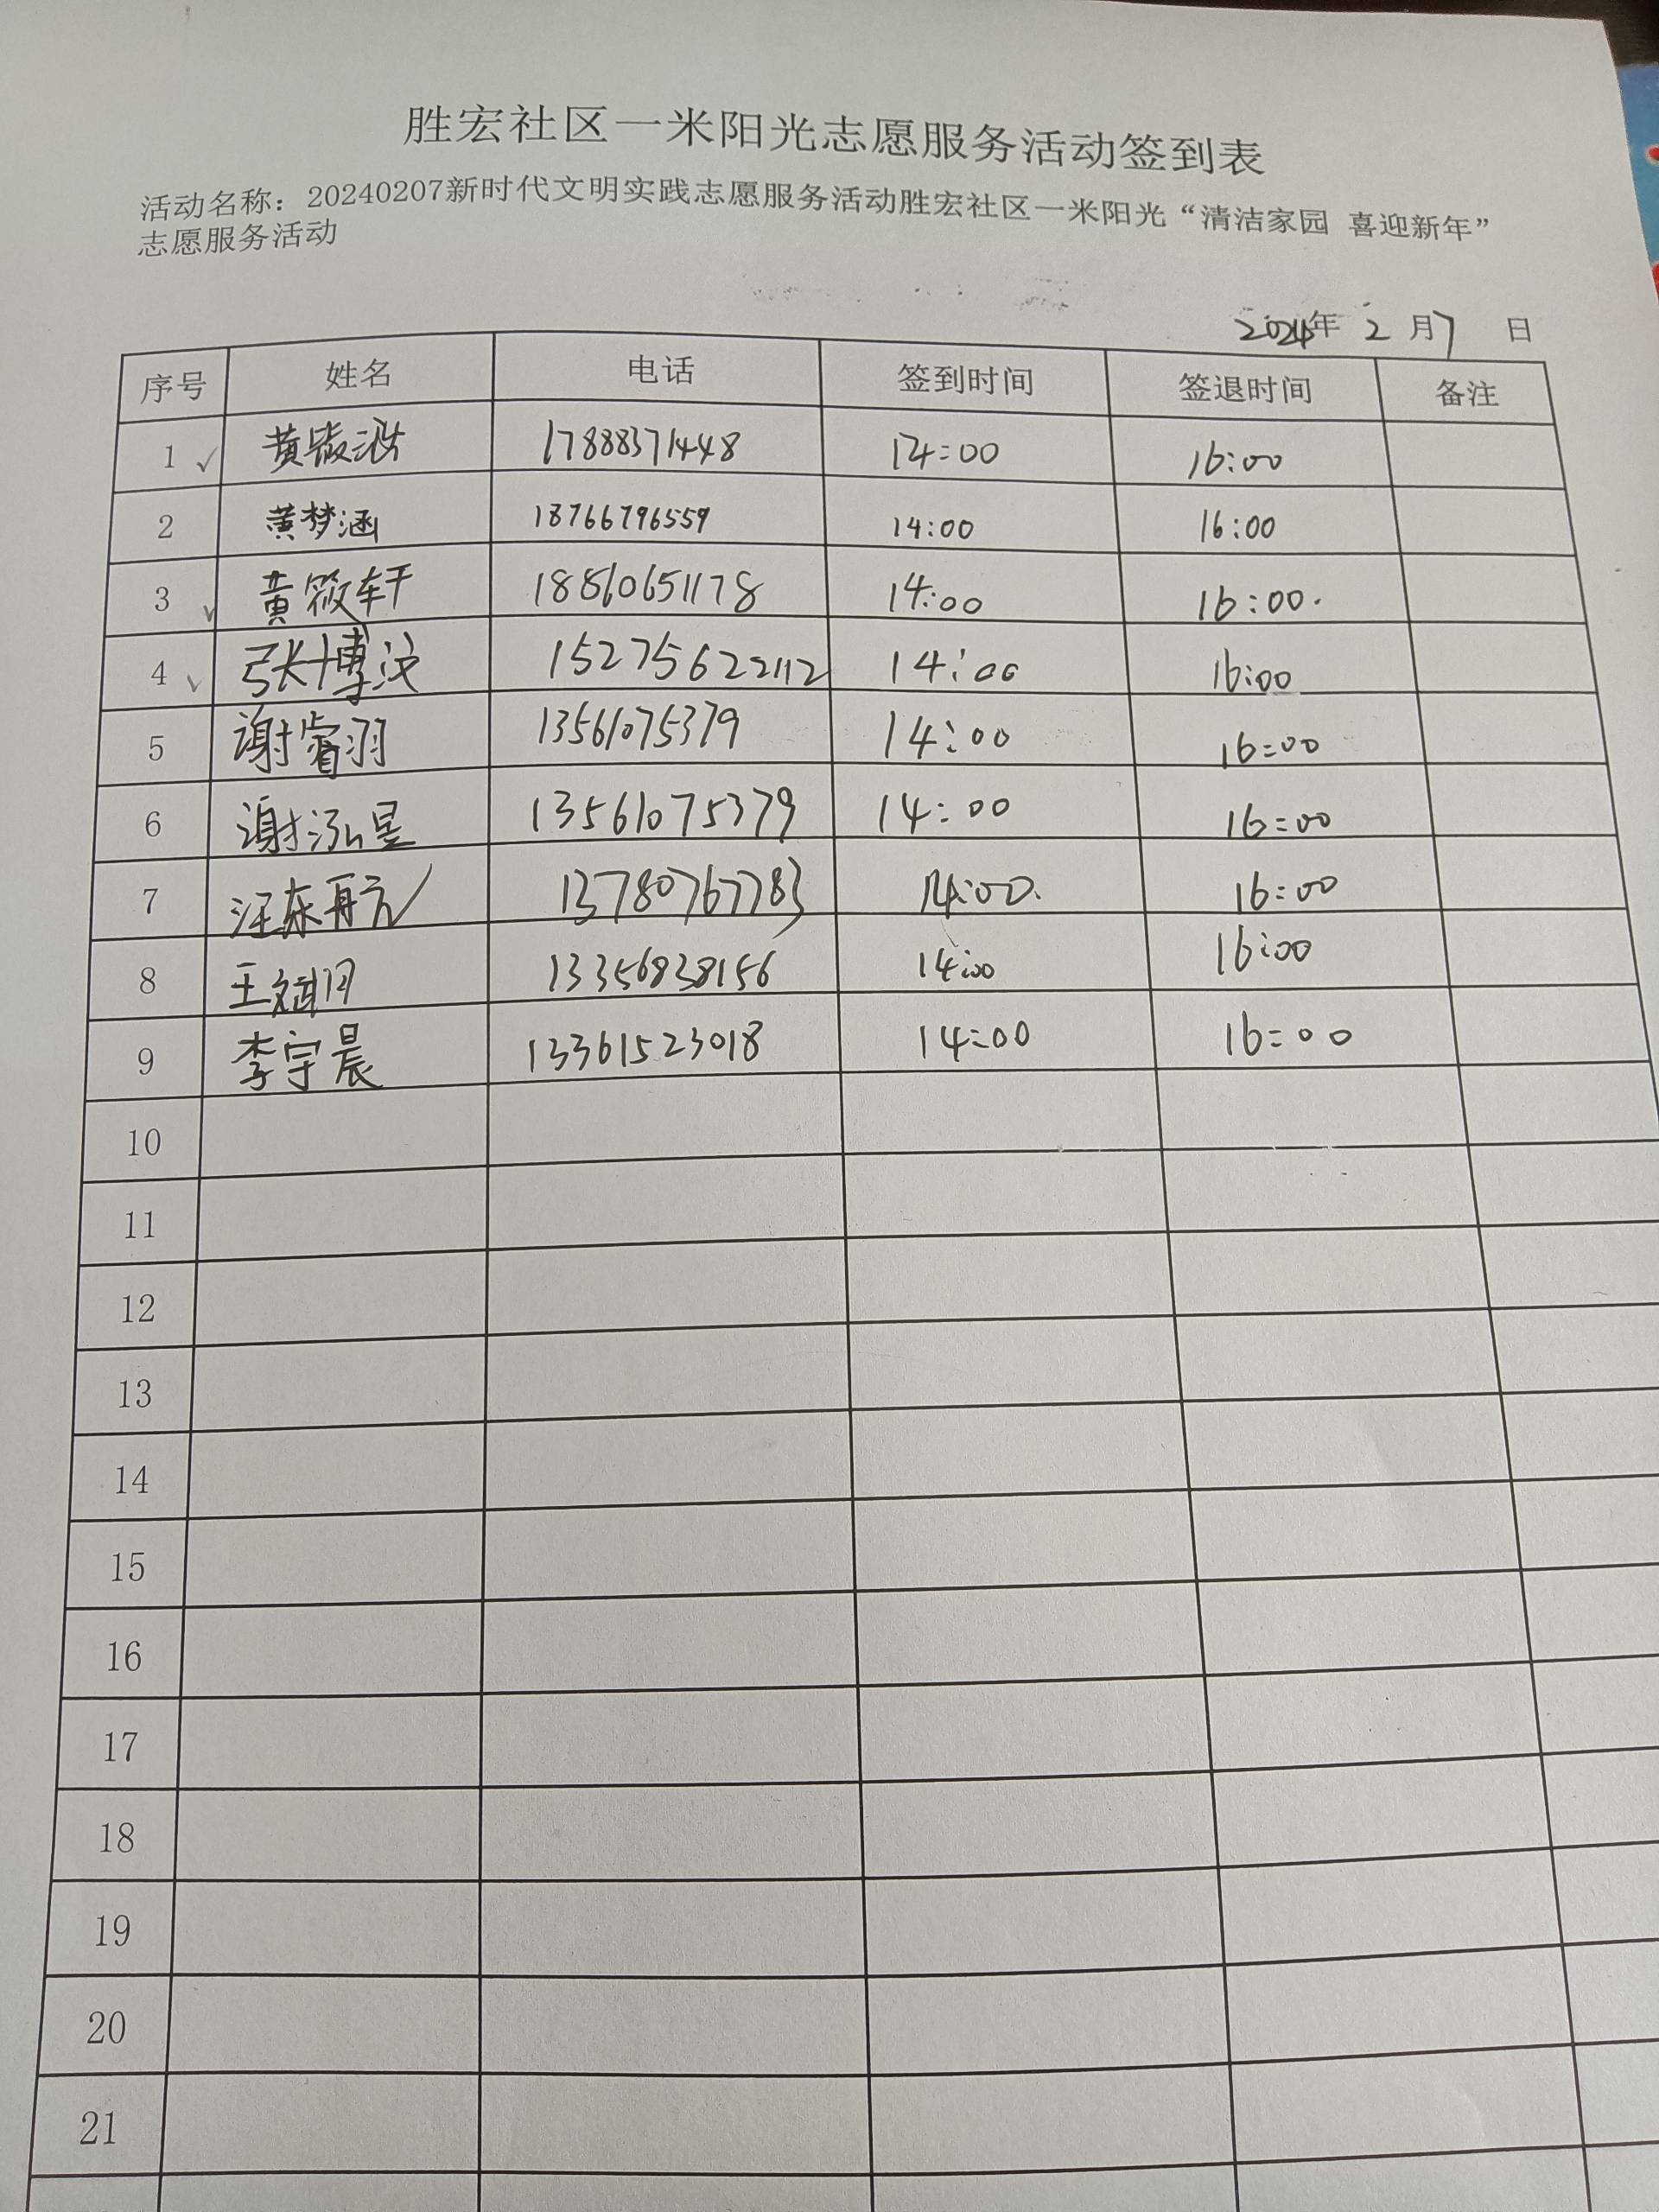 胜宏社区一米阳光志愿服务活动签到表
活动名称：20240207新时代文明实践志愿服务活动胜宏社区一米阳光“清洁家园 喜迎新年”
志愿服务活动
2024年 2 月7 日
序号 姓名 电话 签到时间 签退时间 备注
1 黄 17888371448 14:00 16:00
2 黄梦涵 18766796559 14:00 16:00
3 黄筱轩 188610651178 14:00 16:00.
4 张博汶 15275622112 14:00 16:00
5 谢睿羽 13561075379 14:00 16:00
6 谢泓昱 13561075379 14:00 16:00
7 汪东再 13780767783 14:00. 16:00
8 王斌 13356838156 14:00 16:00
9 李宇晨 13361523018 14:00 16:00
10
11
12
13
14
15
16
17
18
19
20
21